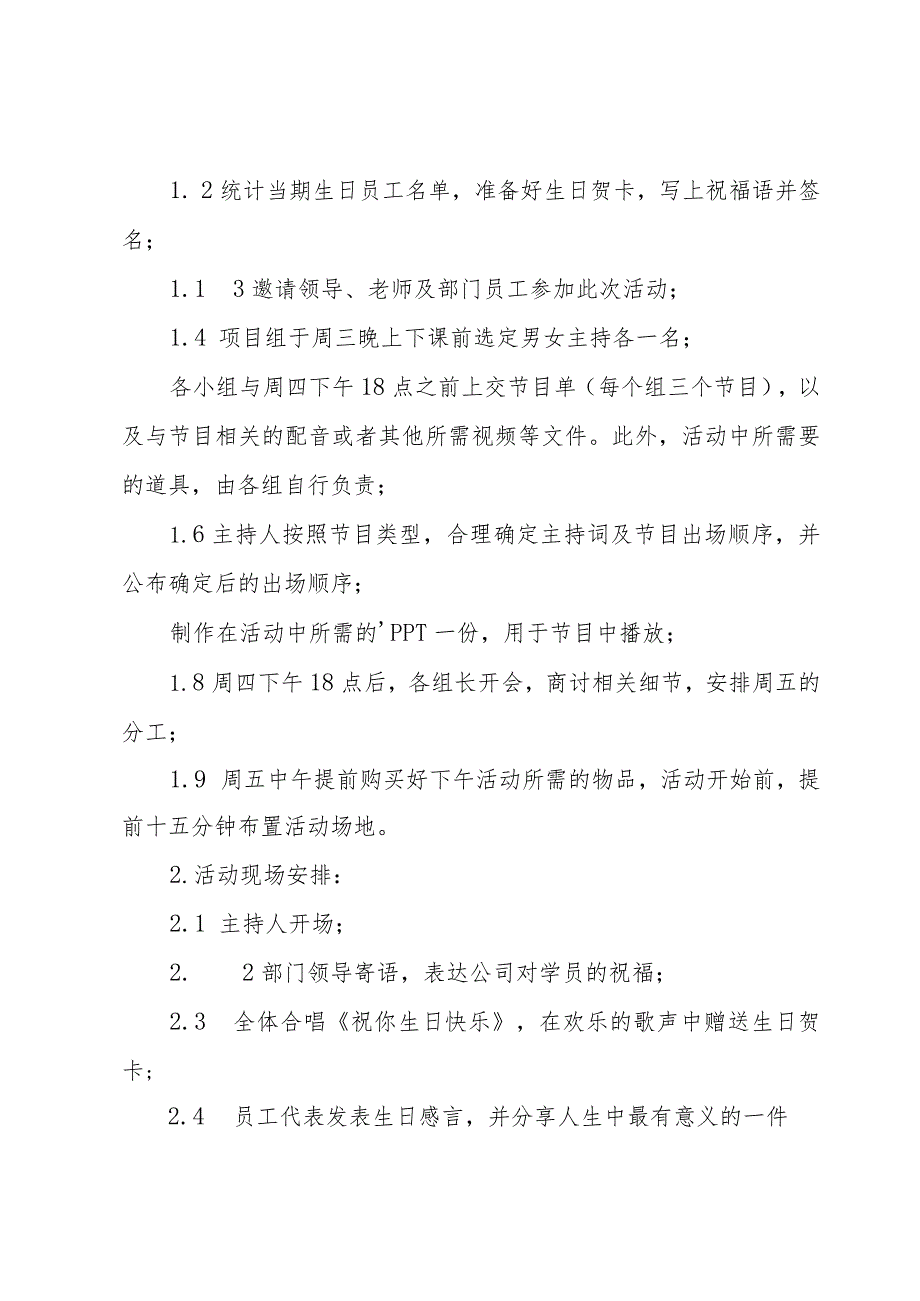 1. 2统计当期生日员工名单，准备好生日贺卡，写上祝福语并签
名；
1.1 3邀请领导、老师及部门员工参加此次活动；
1.4 项目组于周三晚上下课前选定男女主持各一名；
各小组与周四下午18点之前上交节目单（每个组三个节目），以
及与节目相关的配音或者其他所需视频等文件。此外，活动中所需要
的道具，由各组自行负责；
1.6主持人按照节目类型，合理确定主持词及节目出场顺序，并
公布确定后的出场顺序；
制作在活动中所需的'PPT一份，用于节目中播放；
1.8周四下午18点后，各组长开会，商讨相关细节，安排周五的
分工；
1.9 周五中午提前购买好下午活动所需的物品，活动开始前，提
前十五分钟布置活动场地。
2.活动现场安排：
2.1 主持人开场；
2. 2部门领导寄语，表达公司对学员的祝福；
2.3 全体合唱《祝你生日快乐》，在欢乐的歌声中赠送生日贺
卡；
2.4 员工代表发表生日感言，并分享人生中最有意义的一件